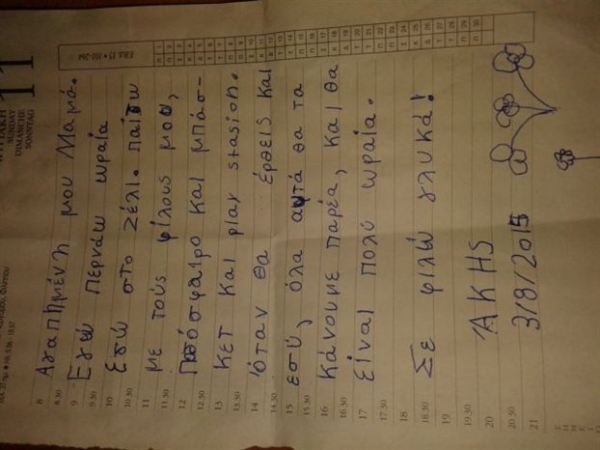 11
SUNDAY
DIMANCHE
SONNTAG
8 Αγαπημένη μου Μαμά.
8.30
9 Εγώ περνάω ωραία
9.30
10 Εδώ στο Ζέλι. παίζω
10.30
11 με τούς φίλους μου,
11.30
12 Ποόσφαιρο και μπάσ-
12.30
13 κετ και play stasion.
13.30
14 Όταν θα έρθεις και
14.30
15 εσύ, όλα αυτά θα τα
15.30
16 κάνουμε παρέα, και θα
16.30
17 είναι πολύ ωραία.
17.30
18
18.30 Σε φιλώ γλυκά!
19
19.30
20 ΆΚΗS
20.30
21 3/8/2015